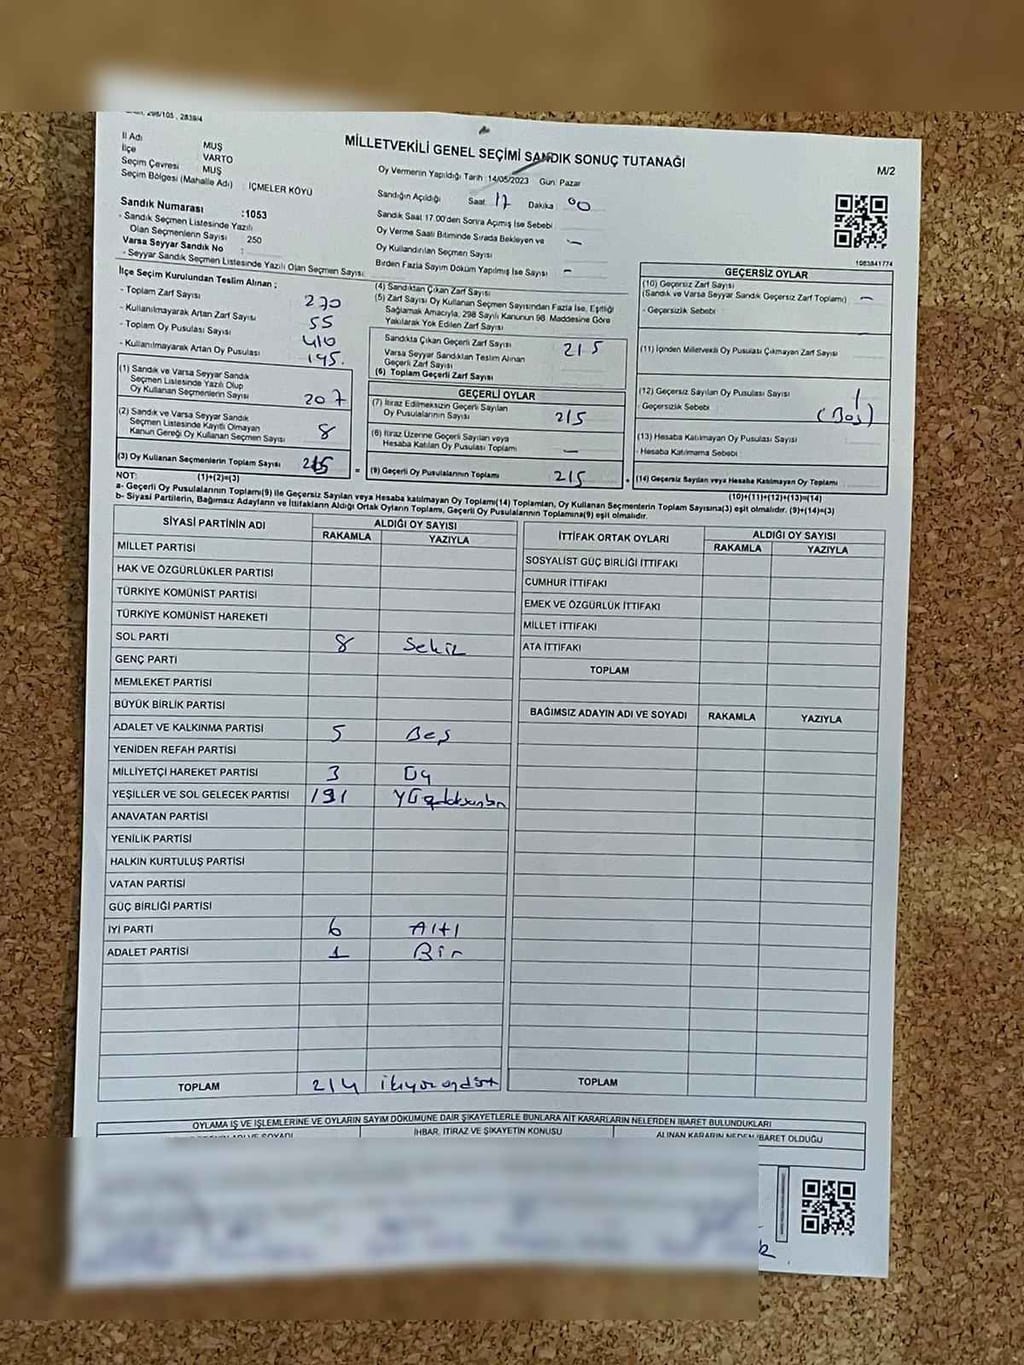 298/105 , 2839/4
MİLLETVEKİLİ GENEL SEÇİMİ SANDIK SONUÇ TUTANAĞI
M/2
İl Adı MUŞ
İlçe VARTO
Seçim Çevresi MUŞ
Seçim Bölgesi (Mahalle Adı) : İÇMELER KÖYÜ
Sandık Numarası :1053
- Sandık Seçmen Listesinde Yazılı
Olan Seçmenlerin Sayısı 250
Varsa Seyyar Sandık No :
- Seyyar Sandık Listesinde Yazılı Olan Seçmen Sayısı
Oy Vermenin Yapıldığı Tarih 14/05/2023 Gün: Pazar
Sandığın Açıldığı Saat 17 Dakika 00
Sandık Saat 17.00'den Sonra Açılmış İse Sebebi
Oy Verme Saati Bitiminde Sırada Bekleyen ve
Oy Kullandırılan Seçmen Sayısı —
Birden Fazla Sayım Döküm Yapılmış İse Sayısı –
1083841774
İlçe Seçim Kurulundan Teslim Alınan ;
- Toplam Zarf Sayısı 270
- Kullanılmayarak Artan Zarf Sayısı 55
- Toplam Oy Pusulası Sayısı 410
- Kullanılmayarak Artan Oy Pusulası 195.
(1) Sandık ve Varsa Seyyar Sandık
Seçmen Listesinde Yazılı Olup
Oy Kullanan Seçmenlerin Sayısı 207
(2) Sandık ve Varsa Seyyar Sandık
Seçmen Listesinde Kayıtlı Olmayan
Kanun Gereği Oy Kullanan Seçmen Sayısı 8
(3) Oy Kullanan Seçmenlerin Toplam Sayısı 215
(1)+(2)=(3)
(4) Sandıktan Çıkan Zarf Sayısı
(5) Zarf Sayısı Oy Kullanan Seçmen Sayısından Fazla İse, Eşitliği
Sağlamak Amacıyla, 298 Sayılı Kanunun 98. Maddesine Göre
Yakılarak Yok Edilen Zarf Sayısı
Sandıkta Çıkan Geçerli Zarf Sayısı 215
Varsa Seyyar Sandıktan Teslim Alınan
Geçerli Zarf Sayısı
(6) Toplam Geçerli Zarf Sayısı
GEÇERLİ OYLAR
(7) İtiraz Edilmeksizin Geçerli Sayılan
Oy Pusulalarının Sayısı 215
(8) İtiraz Üzerine Geçerli Sayılan veya
Hesaba Katılan Oy Pusulası Toplamı —
= (9) Geçerli Oy Pusulalarının Toplamı 215
GEÇERSİZ OYLAR
(10) Geçersiz Zarf Sayısı
(Sandık ve Varsa Seyyar Sandık Geçersiz Zarf Toplamı) –
- Geçersizlik Sebebi
(11) İçinden Milletvekili Oy Pusulası Çıkmayan Zarf Sayısı
(12) Geçersiz Sayılan Oy Pusulası Sayısı 1
- Geçersizlik Sebebi (Boş)
(13) Hesaba Katılmayan Oy Pusulası Sayısı
- Hesaba Katılmama Sebebi
(14) Geçersiz Sayılan veya Hesaba Katılmayan Oy Toplamı
(10)+(11)+(12)+(13)=(14)
NOT:
a- Geçerli Oy Pusulalarının Toplamı(9) ile Geçersiz Sayılan veya Hesaba katılmayan Oy Toplamı(14) Toplamları, Oy Kullanan Seçmenlerin Toplam Sayısına(3) eşit olmalıdır. (9)+(14)=(3)
b- Siyasi Partilerin, Bağımsız Adayların ve İttifakların Aldığı Ortak Oyların Toplamı, Geçerli Oy Pusulalarının Toplamına(9) eşit olmalıdır.
SİYASİ PARTİNİN ADI ALDIĞI OY SAYISI
RAKAMLA YAZIYLA
MİLLET PARTİSİ
HAK VE ÖZGÜRLÜKLER PARTİSİ
TÜRKİYE KOMÜNİST PARTİSİ
TÜRKİYE KOMÜNİST HAREKETİ
SOL PARTİ 8 Sekiz
GENÇ PARTİ
MEMLEKET PARTİSİ
BÜYÜK BİRLİK PARTİSİ
ADALET VE KALKINMA PARTİSİ 5 Beş
YENİDEN REFAH PARTİSİ
MİLLİYETÇİ HAREKET PARTİSİ 3 Üç
YEŞİLLER VE SOL GELECEK PARTİSİ 191
ANAVATAN PARTİSİ
YENİLİK PARTİSİ
HALKIN KURTULUŞ PARTİSİ
VATAN PARTİSİ
GÜÇ BİRLİĞİ PARTİSİ
İYİ PARTİ 6 Altı
ADALET PARTİSİ 1 Bir
TOPLAM 214 ikiyüzondört
İTTİFAK ORTAK OYLARI ALDIĞI OY SAYISI
RAKAMLA YAZIYLA
SOSYALİST GÜÇ BİRLİĞİ İTTİFAKI
CUMHUR İTTİFAKI
EMEK VE ÖZGÜRLÜK İTTİFAKI
MİLLET İTTİFAKI
ATA İTTİFAKI
TOPLAM
BAĞIMSIZ ADAYIN ADI VE SOYADI RAKAMLA YAZIYLA
TOPLAM
OYLAMA İŞ VE İŞLEMLERİNE VE OYLARIN SAYIM DÖKÜMÜNE DAİR ŞİKAYETLERLE BUNLARA AİT KARARLARIN NELERDEN İBARET BULUNDUKLARI
İHBAR, İTİRAZ VE ŞİKAYETİN KONUSU
ALINAN KARARIN NEDEN İBARET OLDUĞU